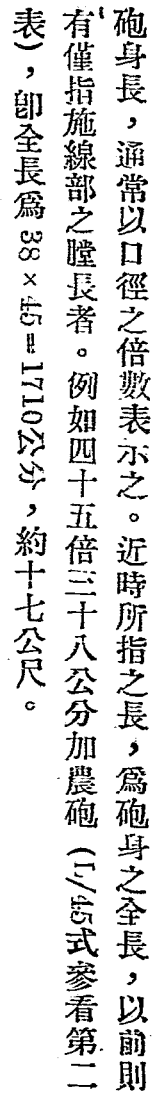 砲身長，通常以口徑之倍數表示之。近時所指之長，爲砲身之全長，以前則
有僅指施線部之膛長者。例如四十五倍三十八公分加農砲（L/45式參看第二
表），卽全長爲38×45=1710公分，約十七公尺。